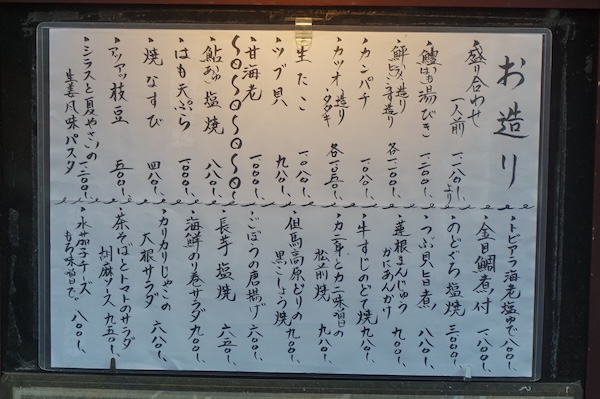 お造り
盛り合わせ
一人前 一、二八〇円より
鱧湯びき 一、二〇〇、
造り 各一、二〇〇、
カンパチ 一、〇八〇、
カツオ 造り・タタキ 各一、〇五〇、
生たこ 一、〇八〇、
ツブ貝 九八〇、
甘海老 一、〇〇〇、
鮎 あゆ 塩焼 八八〇、
はも天ぷら 一、〇〇〇、
焼なすび 四八〇、
アツアツ枝豆 五〇〇、
シラスと夏やさいの
生姜風味パスタ 一、二〇〇、
・トビアラ海老塩ゆで 八〇〇、
・金目鯛煮付 一、八〇〇、
・のどぐろ塩焼 三、〇〇〇、
・つぶ貝旨煮 八八〇、
・蓮根まんじゅう
かにあんかけ 九〇〇、
・牛すじのどて焼 九八〇、
・カニ身とカニ味噌の
松前焼 九八〇、
・但馬高原どりの
黒こしょう焼 九〇〇、
・ごぼうの唐揚げ 六〇〇、
・長芋塩焼 六五〇、
・海鮮のり巻サラダ 九〇〇、
・カリカリじゃこの
大根サラダ 六八〇、
・茶そばとトマトのサラダ
胡麻ソース 九五〇、
・水茄子チーズ
もろ味噌で 八〇〇、